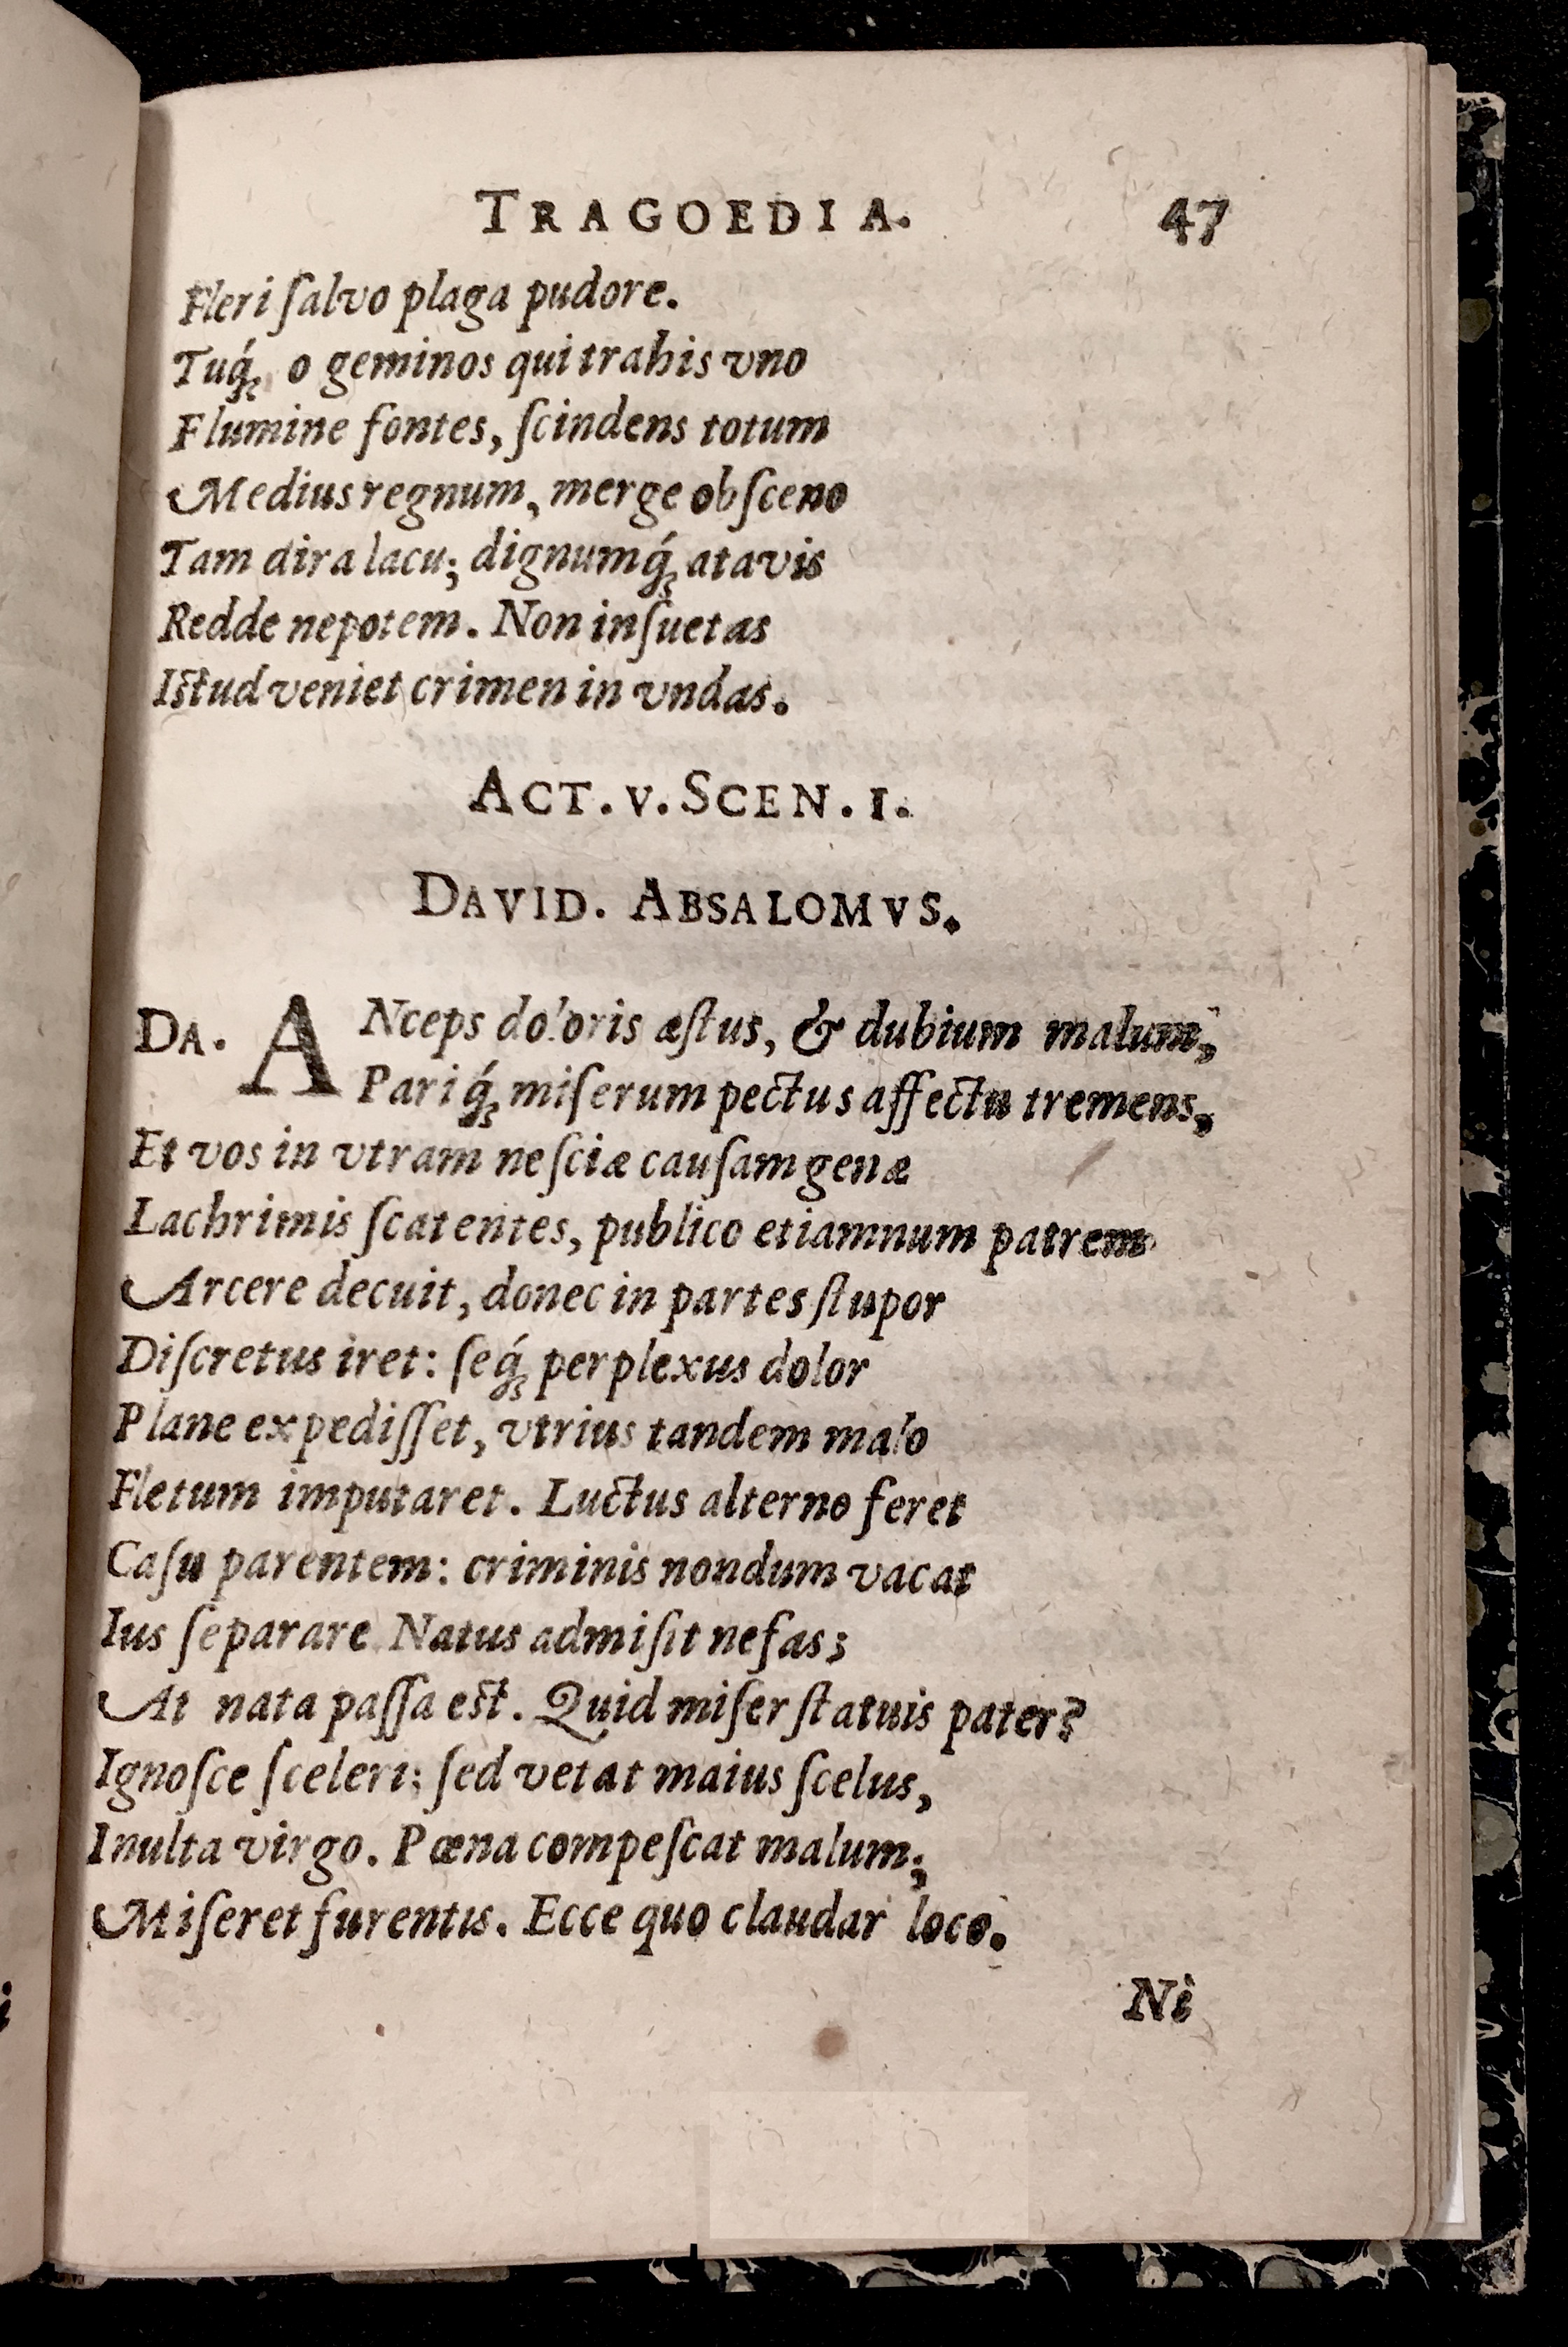 TRAGOEDIA. 47
Fleri ſalvo plaga pudore.
Tuq́ꝫ o geminos qui trahis vno
Flumine fontes, ſcindens totum
Medius regnum, merge obſceno
Tam dira lacu; dignumq́ꝫ atavis
Redde nepotem. Non inſuetas
Iſtud veniet crimen in vndas.
ACT. V. SCEN. I.
DAVID. ABSALOMVS.
DA. ANceps doloris æſtus, & dubium malum,
Pariq́ꝫ miſerum pectus affectu tremens,
Et vos in vtram neſciæ cauſam genæ
Lachrimis ſcatentes, publico etiamnum patrem
Arcere decuit, donec in partes ſtupor
Diſcretus iret: ſeq́ꝫ perplexus dolor
Plane expediſſet, vtrius tandem malo
Fletum imputaret. Luctus alterno feret
Caſu parentem: criminis nondum vacat
Ius ſeparare. Natus admiſit nefas;
At nata paſſa eſt. Quid miſer ſtatuis pater?
Ignoſce ſceleri; ſed vetat maius ſcelus,
Inulta virgo. Pœna compeſcat malum;
Miſeret furentis. Ecce quo claudar loco.
Ni